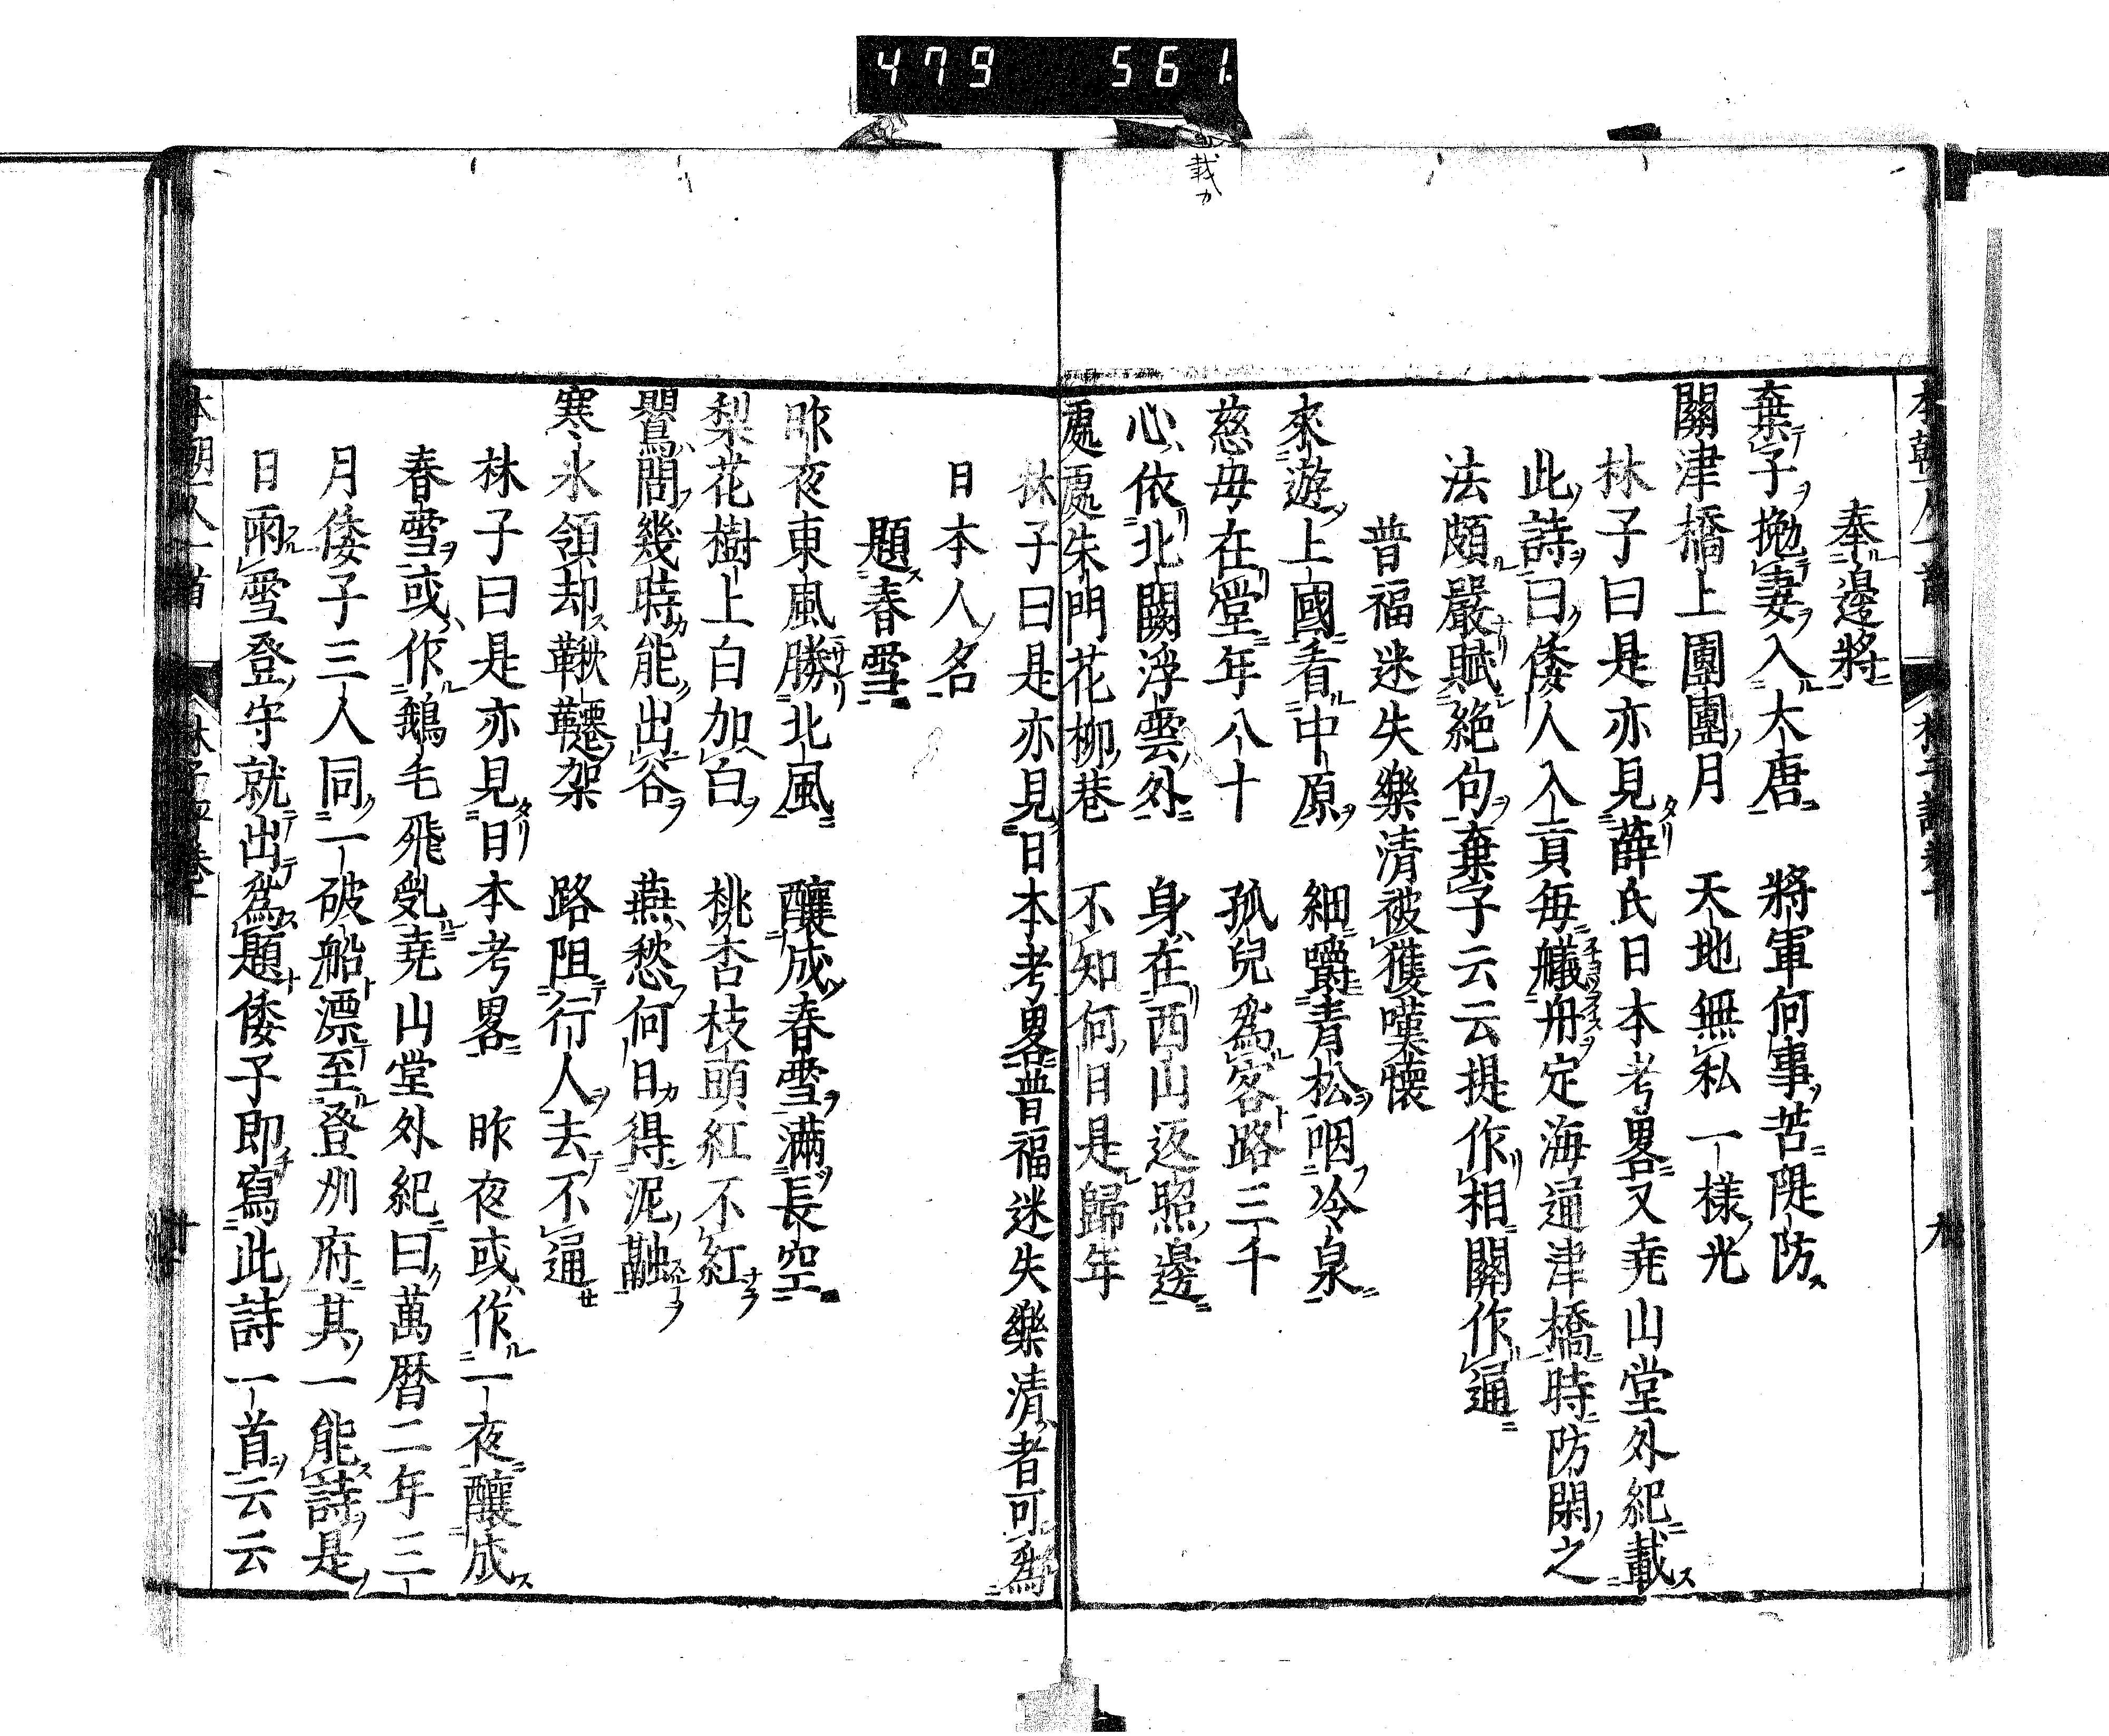 479 561
載カ
奉邊將
棄子抛妻入大唐 將軍何事苦隄防
關津橋上團團月 天地無私一樣光
林子曰是亦見薛氏日本考畧又堯山堂外紀載
此詩曰倭人入貢每艤舟定海通津橋時防閑之
法頗嚴賦絶句棄子云云提作相關作通
普福迷失樂清被獲嘆懷
來遊上國看中原 細嚼青松咽冷泉
慈母在堂年八十 孤兒爲客路三千
心依北闕浮雲外 身在西山返照邊
處處朱門花柳巷 不知何日是歸年
林子曰是亦見日本考畧普福迷失樂清者可爲
日本人名
題春雪
昨夜東風勝北風 釀成春雪滿長空
梨花樹上白加白 桃杏枝頭紅不紅
鸎問幾時能出谷 燕愁何日得泥融
寒氷領却鞦韆架 路阻行人去不通
林子曰是亦見日本考畧 昨夜或作一夜釀成
春雪或作鵝毛飛亂堯山堂外紀曰萬暦二年三
月倭子三人同一破船漂至登州府其一能詩是
日雨雪登守就出爲題倭子即寫此詩一首云云
本朝一人一首
十